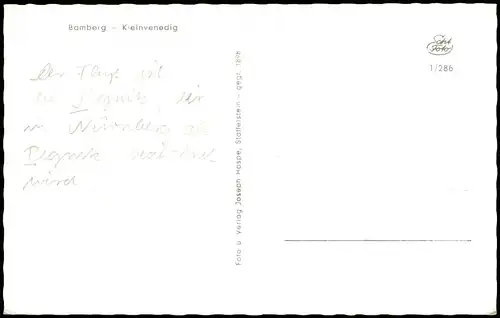 Bamberg - Kleinvenedig
Echt
Foto
1/286
Der Fluß ist
die Regnitz, die
in Nürnberg als
Pegnitz
wird
Foto u. Verlag Joseph Haspe, Staffelstein - gegr. 1898